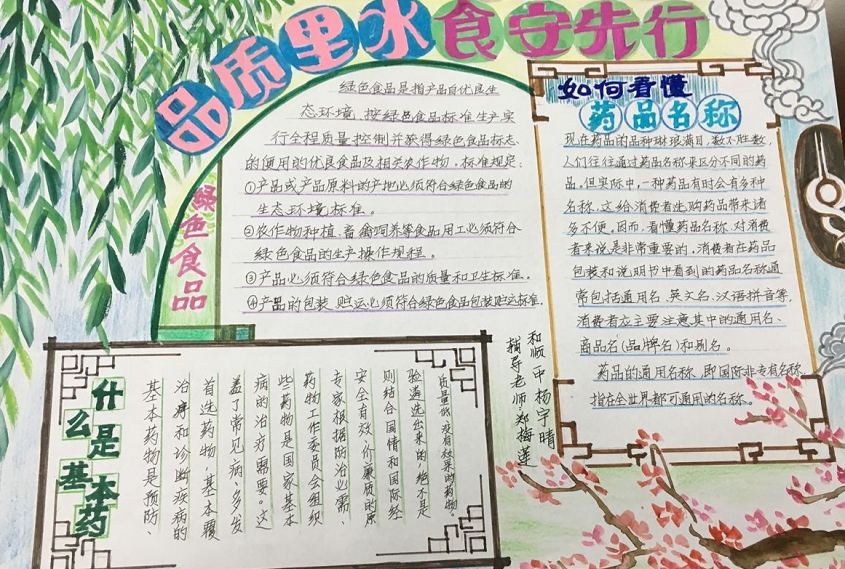 品质里水食安先行
绿色食品
绿色食品是指产品自优良生
态环境、按绿色食品标准生产实
行全程质量控制并获得绿色食品标志
的使用的优良食品及相关农作物，标准规定：
①产品或产品原料的产地必须符合绿色食品的
生态环境标准。
②农作物种植、畜禽饲养等食品用工必须符合
绿色食品的生产操作规程。
③产品必须符合绿色食品的质量和卫生标准。
④产品的包装、贮运必须符合绿色食品包装贮运标准.
如何看懂
药品名称
现在药品的品种琳琅满目,数不胜数,
人们往往通过药品名称来区分不同的药
品,但实际中,一种药品有时会有多种
名称,这给消费者选购药品带来诸
多不便。因而,看懂药品名称,对消费
者来说是非常重要的,消费者在药品
包装和说明书中看到的药品名称通
常包括通用名、英文名、汉语拼音等,
消费者应主要注意其中的通用名、
商品名(品牌名)和别名。
药品的通用名称,即国际非专有名称,
指在全世界都可通用的名称。
和顺中 杨宇晴
指导老师 郑梅莲
什么是
基本药
基本药物是预防、
治疗和诊断疾病的
首选药物,基本覆
盖了常见病、多发
病的治疗需要。这
些药物是国家基本
药物工作委员会组织
专家根据防治必需、
安全有效、价廉质的原
则结合国情和国际经
验遴选出来的,绝不是
质量低、没有效果的药物。